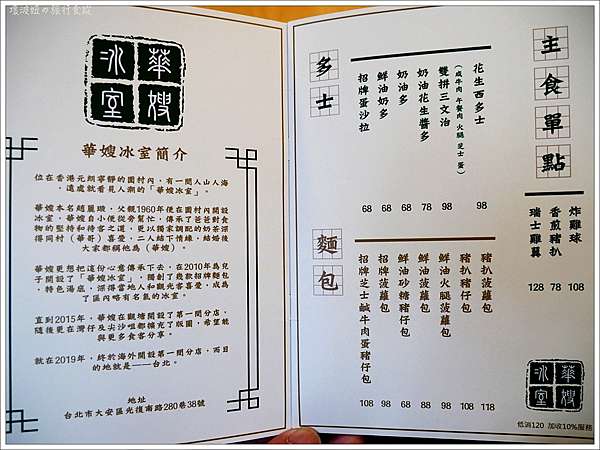 壞波妞の旅行食蹤
華嫂
冰室
華嫂冰室簡介
位在香港元朗寧靜的圍村內，有一間人山人海
，遠處就看見人潮的「華嫂冰室」。
華嫂本名趙麗璇，父親1960年便在圍村內開設
冰室，華嫂自小便從旁幫忙，傳承了爸爸對食
物的堅持和待客之道，更以獨家調配的奶茶深
得同村（華哥）喜愛，二人結下情緣，結婚後
大家都稱他為（華嫂）。
華嫂更想把這份心意傳承下去，在2010年為兒
子開設了「華嫂冰室」，獨創了幾款招牌麵包
，特色湯底，深得當地人和觀光客喜愛，成為
了區內略有名氣的冰室。
直到2015年，華嫂在觀塘開設了第一間分店，
隨後更在灣仔及尖沙咀都擴充了版圖，希望能
與更多食客分享。
就在2019年，終於海外開設第一間分店，而目
的地就是——台北。
地址
台北市大安區光復南路280巷38號
主食單點
炸雞球 108
香煎豬扒 78
瑞士雞翼 128
多士
花生西多士 98
雙拼三文治 98
(咸牛肉 午餐肉 火腿 芝士 蛋)
奶油花生醬多 78
奶油多 68
鮮油奶多 68
招牌蛋沙拉 68
麵包
豬扒菠蘿包 118
豬扒豬仔包 108
鮮油火腿菠蘿包 98
鮮油菠蘿包 88
鮮油砂糖豬仔包 68
招牌菠蘿包 98
招牌芝士鹹牛肉蛋豬仔包 108
華嫂
冰室
低消120 加收10%服務